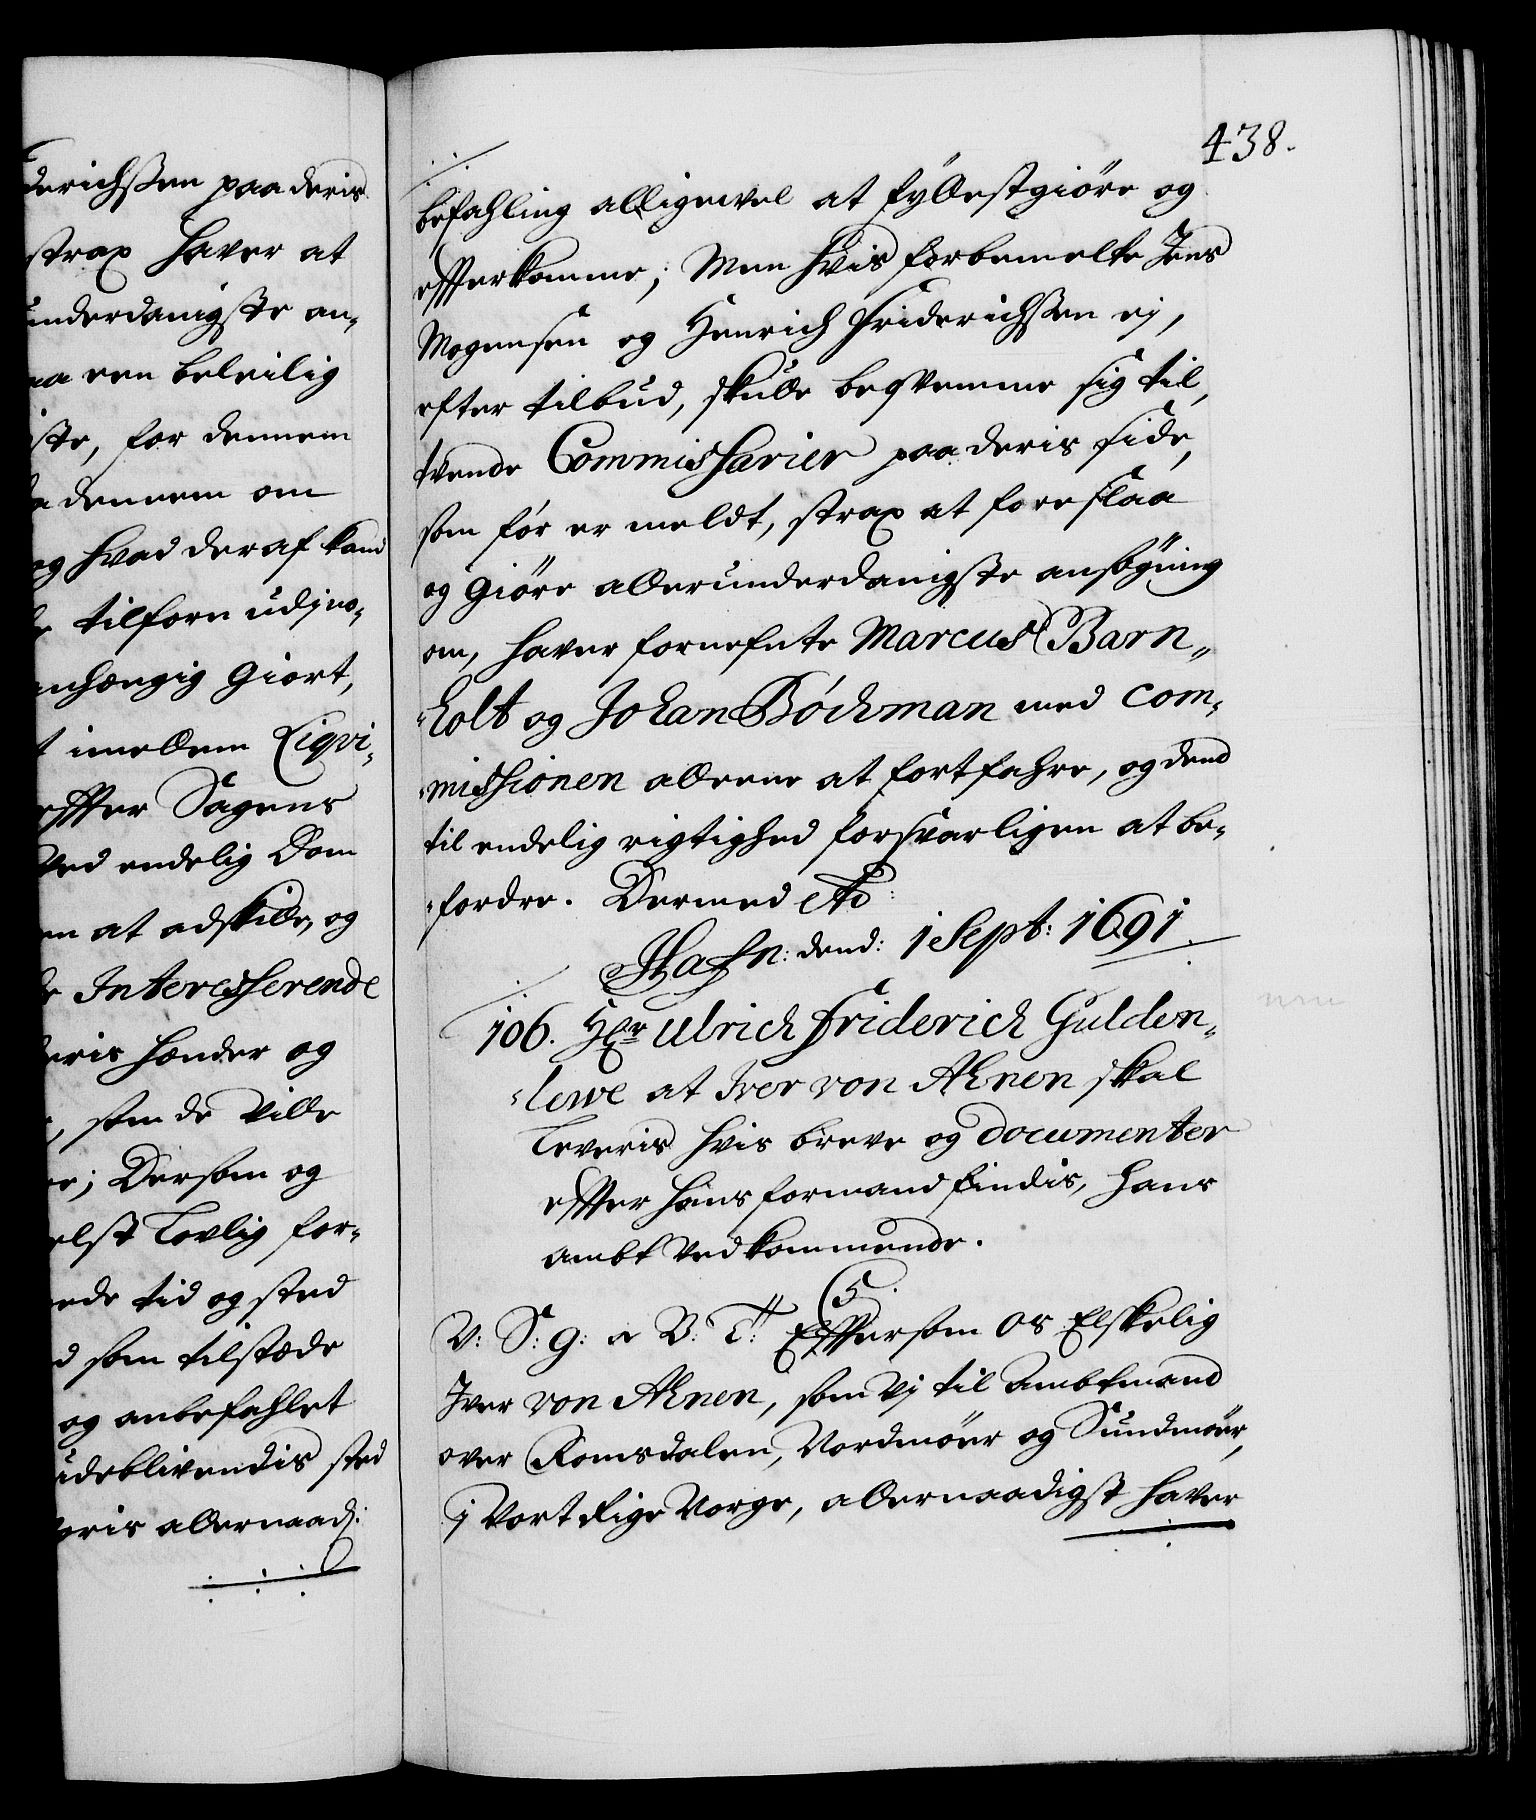 derichssen paa deris
strax haver at
underdanigste an„
een beleilig
ste, for dennem
dennem om
og hvad deraf kand
tilforn udj no„
anhængig giort,
imellem Liqvi„
effter Sagens
Ved endelig Dom
at adskille, og
Interesserende
deris hænder og
som de Ville
Dersom og
Lovlig for„
tid og sted
som tilstæde
og anbefahlet
udeblivendis sted
allernaad:
438.
befahling alligevel at fyllestgiöre og
effterkomme; Men hvis forbemelte Jens
Mogensen og Henrich Friderichssen ej,
efter tilbud, skulle beqvemme sig til,
tvende Commissarier paa deris side,
som før er meldt, strax at foreslaa
og giöre allerunderdanigste ansögning
om, haver fornefnte Marcus Barn„
„holt og Johan Bóchman med Com„
„missionen alleene at fortfahre, og dend
til endelig rigtighed forsvarligen at be„
„fordre. Dermed etc:
Hafn: dend: 1 Sept: 1691.
106. Hr Ulrich Friderich Gulden„
„lewe at Iver von Ahnen skal
Leveris hvis breve og documenter
effter hans formand findis, hans
ambt Vedkommende.
C5.
V: S: G: a B: T: Eftersom os Elskelig
Iver von Ahnen, som Vj til Ambtmand
over Romsdalen, Nordmöer og Sundmöer,
i Vort Rige Norge, allernaadigst haver